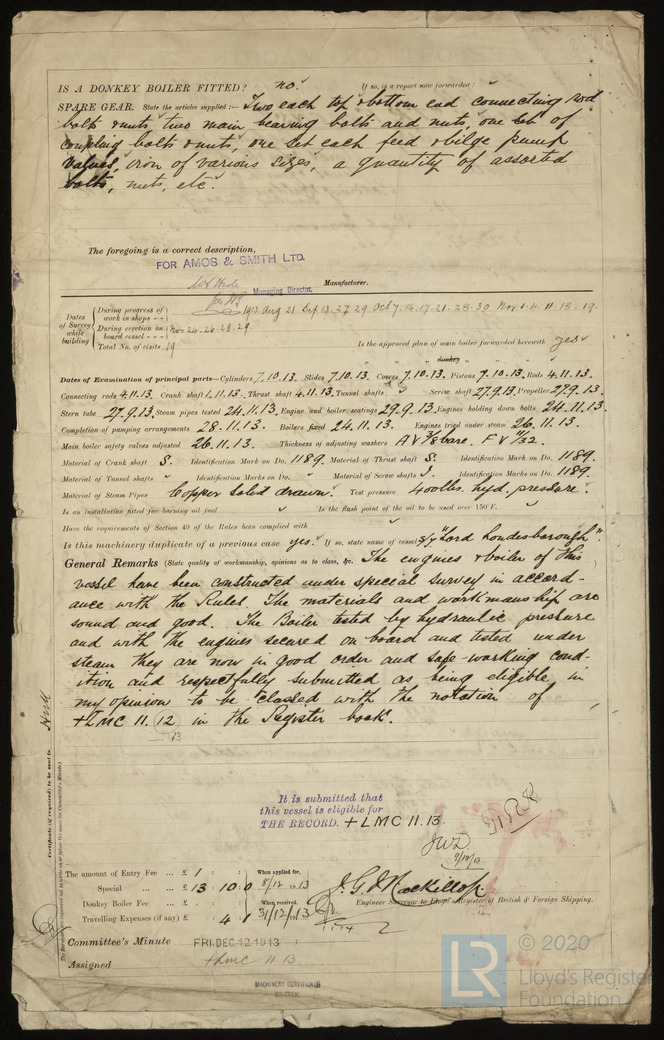 IS A DONKEY BOILER FITTED? no. If so, is a report now forwarded?
SPARE GEAR. State the articles supplied:— Two each top & bottom end connecting rod
bolts & nuts, two main bearing bolts and nuts, one set of
coupling bolts & nuts, one set each feed & bilge pump
valves, iron of various sizes, a quantity of assorted
bolts, nuts, etc.
The foregoing is a correct description,
FOR AMOS & SMITH LTD.
Managing Director. Manufacturer.
Dates of Survey while building
During progress of work in shops - - 1913 Aug 21 Sep 13. 27 29 Oct 7. 16. 17. 21. 28. 30 Nov 1. 4. 11. 18. 19.
During erection on board vessel - - Nov 24. 26. 28. 29.
Total No. of visits 19
Is the approved plan of main boiler forwarded herewith yes
" " " donkey " " "
Dates of Examination of principal parts—Cylinders 7.10.13. Slides 7.10.13. Covers 7.10.13. Pistons 7.10.13. Rods 4.11.13.
Connecting rods 4.11.13. Crank shaft 1.11.13. Thrust shaft 4.11.13. Tunnel shafts Screw shaft 27.9.13. Propeller 27.9.13
Stern tube 27.9.13. Steam pipes tested 24.11.13. Engine and boiler seatings 29.9.13. Engines holding down bolts 24.11.13.
Completion of pumping arrangements 28.11.13. Boilers fixed 24.11.13. Engines tried under steam 26.11.13.
Main boiler safety valves adjusted 26.11.13. Thickness of adjusting washers A V 3/8 bare. F V 11/32.
Material of Crank shaft S. Identification Mark on Do. 1189. Material of Thrust shaft S. Identification Mark on Do. 1189.
Material of Tunnel shafts Identification Marks on Do. Material of Screw shafts I. Identification Marks on Do. 1189.
Material of Steam Pipes Copper solid drawn. Test pressure 400 lbs. hyd. pressure.
Is an installation fitted for burning oil fuel Is the flash point of the oil to be used over 150°F.
Have the requirements of Section 49 of the Rules been complied with
Is this machinery duplicate of a previous case yes. If so, state name of vessel "Lord Londesborough"
General Remarks (State quality of workmanship, opinions as to class, &c. The engines & boiler of this
vessel have been constructed under special survey in accord-
ance with the Rules. The materials and workmanship are
sound and good. The Boiler tested by hydraulic pressure
and with the engines secured on board and tested under
steam they are now in good order and safe working cond-
ition and respectfully submitted as being eligible in
my opinion to be classed with the notation of
+LMC 11.12 in the Register book.
13
Hull
Certificate (if required) to be sent to
It is submitted that
this vessel is eligible for
THE RECORD. + LMC 11.13.
The amount of Entry Fee ... £ 1 : : When applied for,
Special ... ... £ 13 : 10 : 0 8/12 1913
Donkey Boiler Fee ... ... £ : : When received,
Travelling Expenses (if any) £ : 4 : 1 31/12/1913
J. G. Mackillop.
Engineer Surveyor to Lloyd's Register of British & Foreign Shipping.
Committee's Minute FRI. DEC. 12. 1913
Assigned +LMC 11.13
MACHINERY CERTIFICATE
WRITTEN
LR © 2020
Lloyd's Register
Foundation